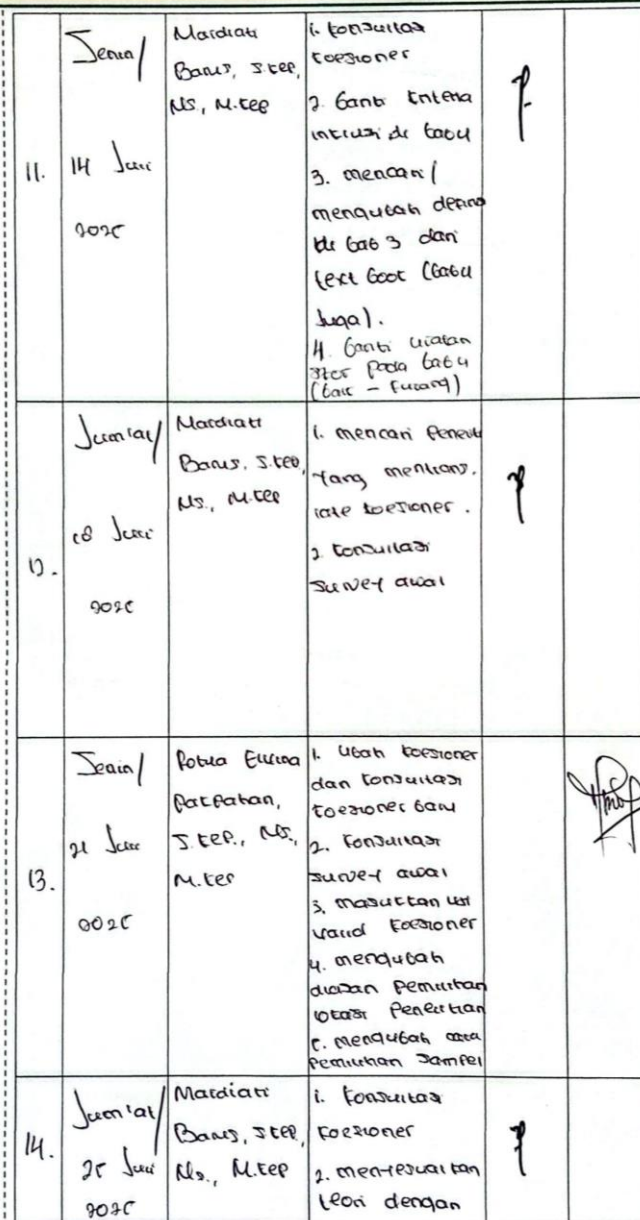 11.
Senin/
14 Juli
2025
Mardiati
Barus, S.Kep,
Ns., M.Kep
1. Konsultasi
koesioner
2. Ganti kriteria
inklusi di bab 4
3. mencari /
mengubah defenisi
di bab 3 dari
text book (bab 4
juga).
4. Ganti
pada bab 4
(baik - kurang)
12.
Jum'at/
18 Juli
2025
Mardiati
Barus, S.Kep,
Ns., M.Kep
1. mencari peneliti
yang mentrans.
late koesioner.
2. Konsultasi
survey awal
13.
Senin/
21 Juli
2025
Rotua Elvina
Pakpahan,
S.Kep., Ns.,
M.Kep
1. Ubah koesioner
dan konsultasi
koesioner baru
2. Konsultasi
survey awal
3. masukkan uji
valid koesioner
4. mengubah
alasan pemilihan
lokasi penelitian
5. mengubah cara
pemilihan sampel
14.
Jum'at/
25 Juli
2025
Mardiati
Barus, S.Kep,
Ns., M.Kep
1. Konsultasi
koesioner
2. menyesuaikan
teori dengan